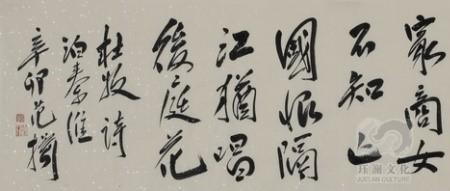 家商女
不知亡
國恨隔
江猶唱
後庭花
杜牧詩
泊秦淮
辛卯范揚
珏澜文化
JUELAN CULTURE